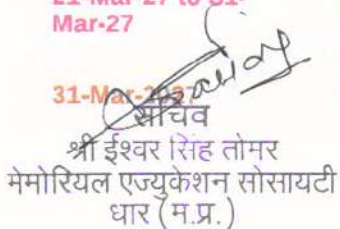 21-Mar-27 to 31-
Mar-27
31-Mar-2027
सचिव
श्री ईश्वर सिंह तोमर
मेमोरियल एज्युकेशन सोसायटी
धार (म.प्र.)